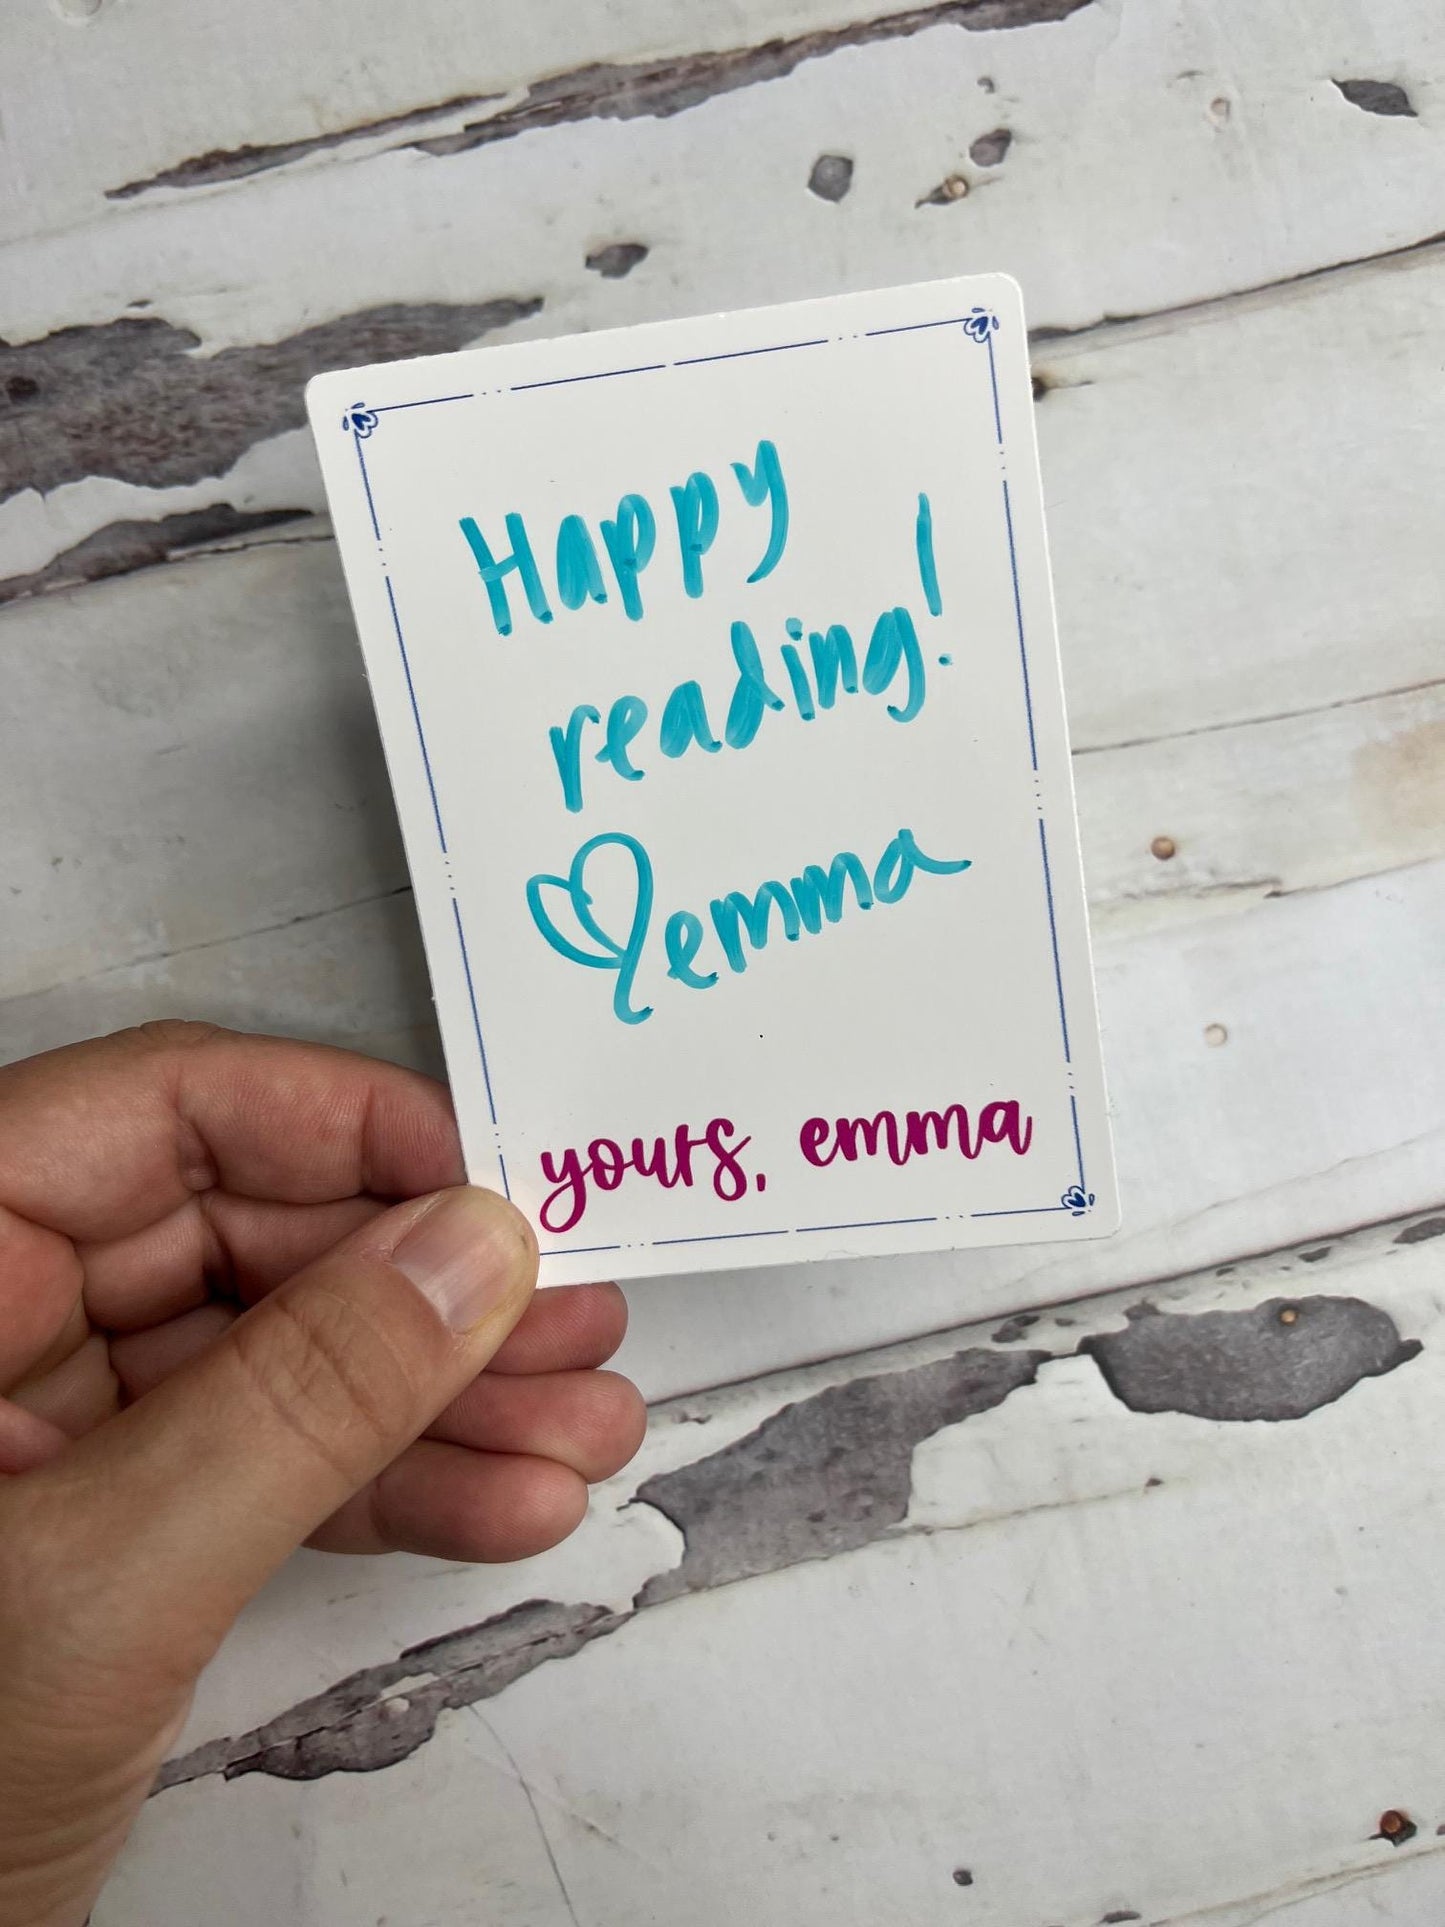 Happy
reading!
♡emma
yours, emma